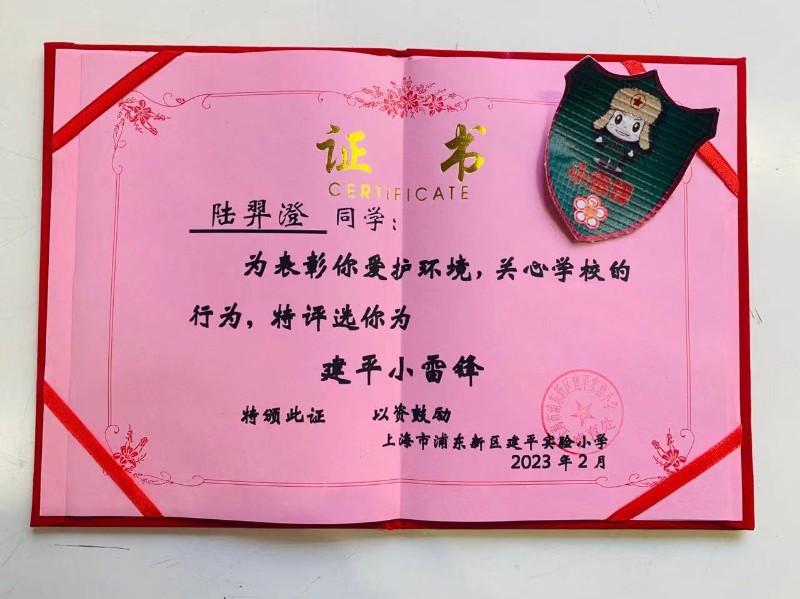 证 书
CERTIFICATE
陆羿澄 同学：
为表彰你爱护环境，关心学校的
行为，特评选你为
建平小雷锋
特颁此证 以资鼓励
上海市浦东新区建平实验小学
2023 年 2 月
小雷锋